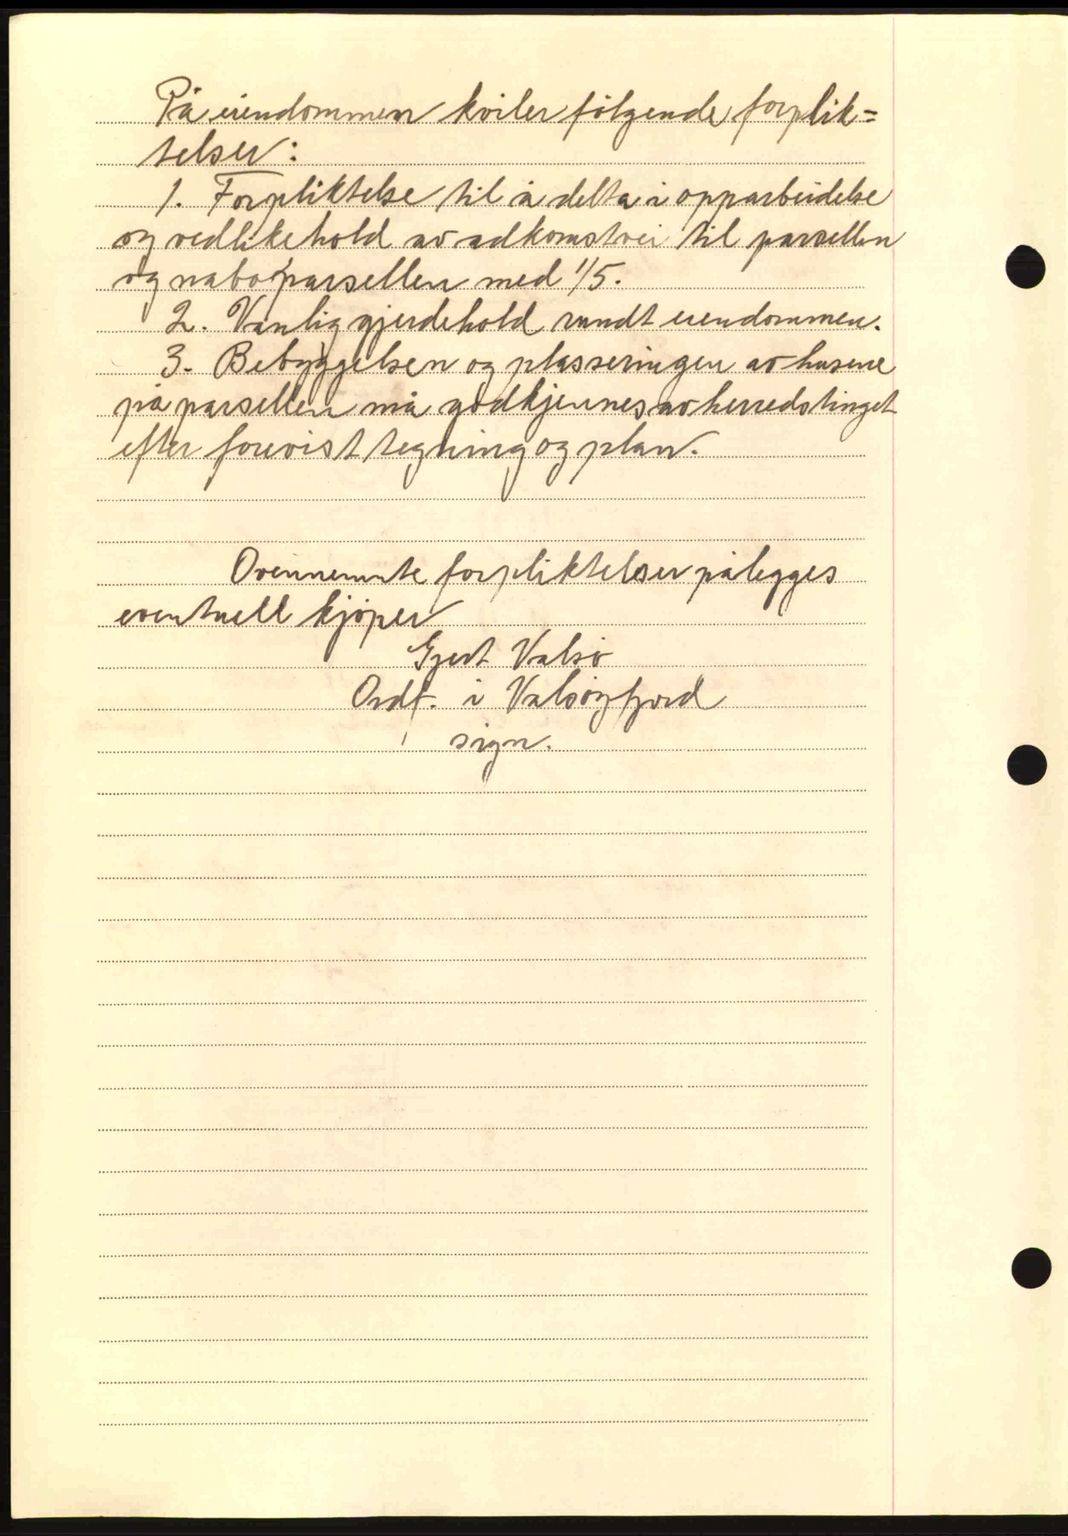 På eiendommen kviler følgende forplik=
telser:
1. Forpliktelse til å delta i opparbeidelse
og vedlikehold av adkomstvei til parsellen
og naboparsellen med 1/5.
2. Vanlig gjerdehold rundt eiendommen.
3. Bebyggelsen og plasseringen av husene
på parsellen må godkjennes av herredstinget
efter forevist tegning og plan.
Ovennemnte forpliktelser pålegges
eventuell kjøper
Gjert Valsø
Ordf. i Valsøyfjord
sign.